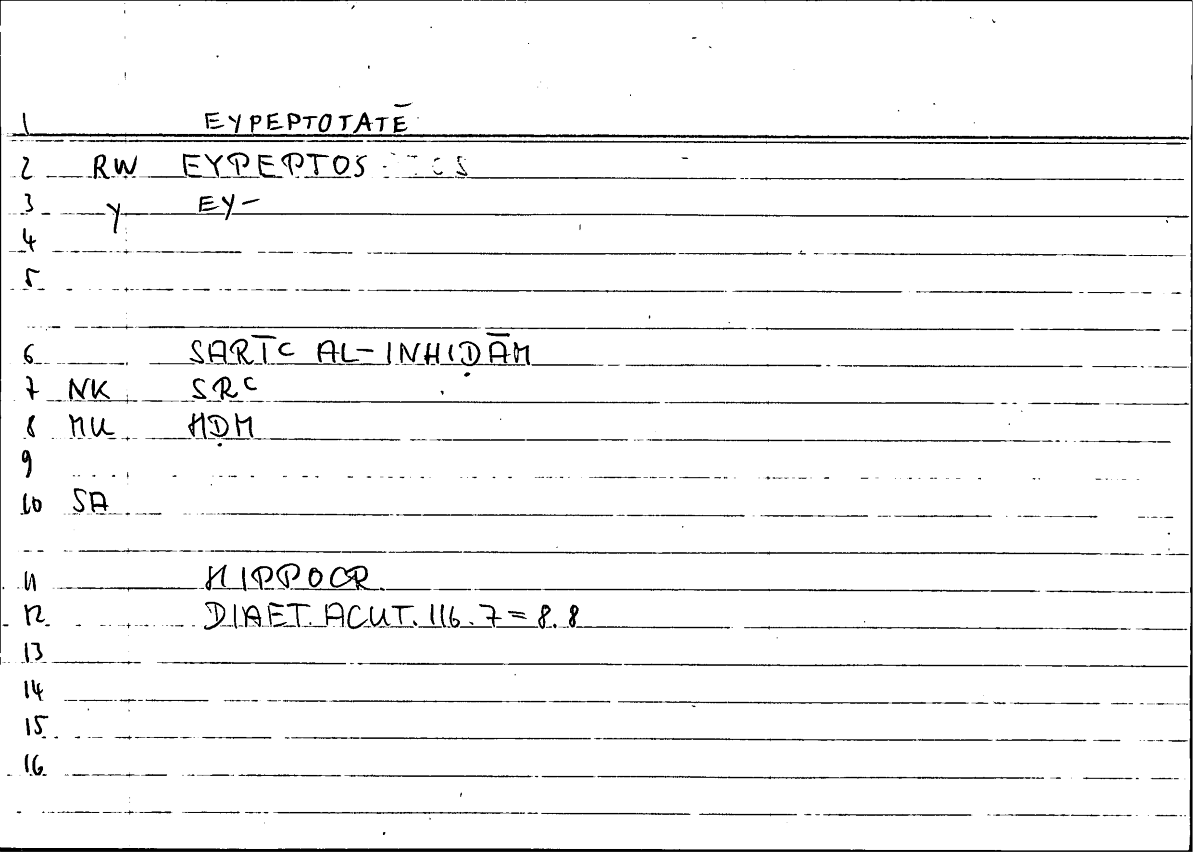 1 EYPEPTOTATĒ
2 RW EYPEPTOS
3 Y EY-
4
5
6 SARĪC AL-INHIḌĀM
7 NK SRC
8 MU HḌM
9
10 SA
11 HIPPOCR.
12 DIAET. ACUT. 116.7=8.8
13
14
15
16